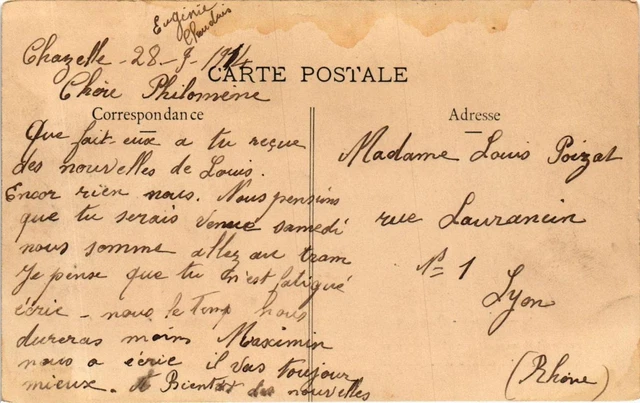 Eugénie
Chazelle - 28 - 9 - 1914
CARTE POSTALE
Chére Philoméne
Correspondance
Que fait-eux a tu reçue
des nouvelles de Louis.
Encor rien nous. Nous pensions
que tu serais venue samedi
nous somme allez au tram
Je pense que tu n'est fatigué
écrie - nous le temp nous
dureras moins Maximin
nous a écrie il vas toujour
mieux. et Bientot des nouvelles
Adresse
Madame Louis Poizat
rue Laurancin
N° 1
Lyon
(Rhône)